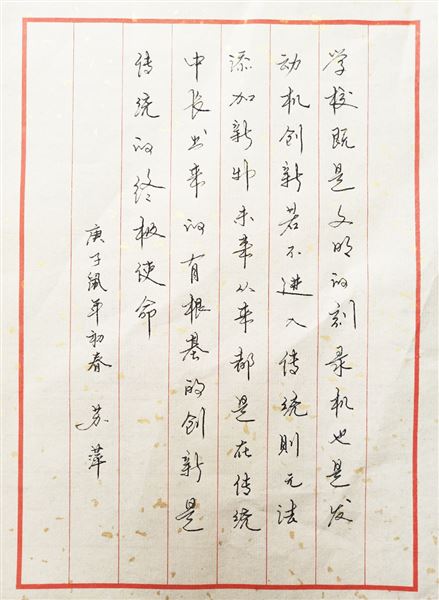 学校既是文明的刻录机也是发
动机创新若不进入传统则无法
添加新物未来从来都是在传统
中长出来的有根基的创新是
传统的终极使命
庚子鼠年初春 苏萍